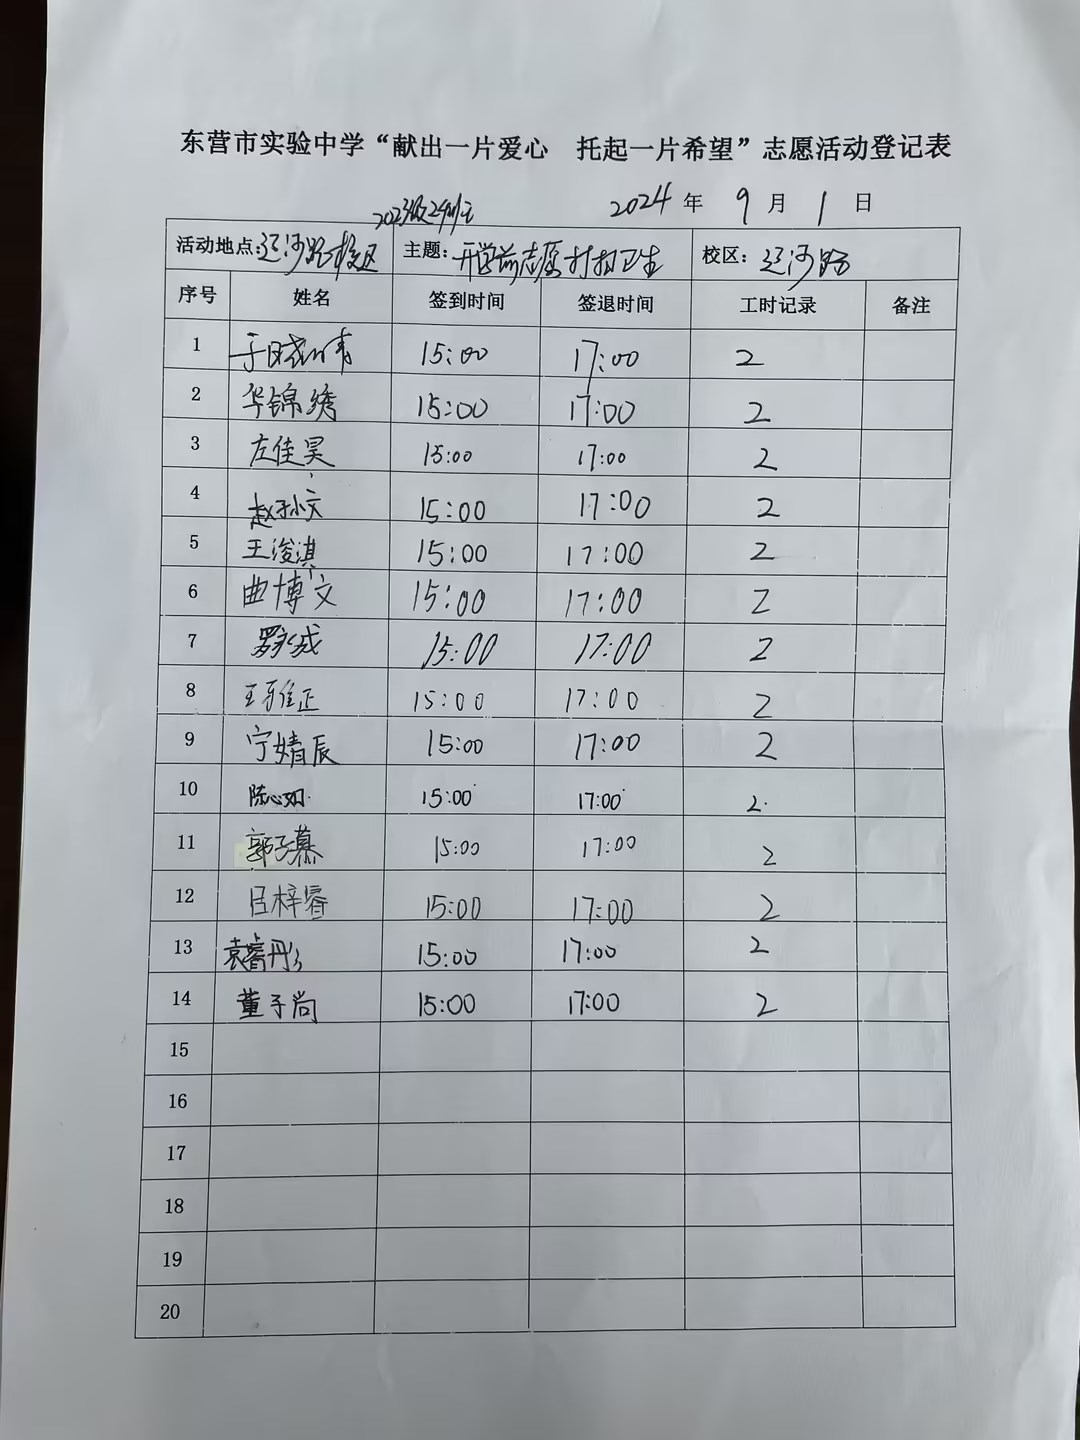 东营市实验中学“献出一片爱心 托起一片希望”志愿活动登记表
2023级29班 2024年9月1日
活动地点:辽河路校区 主题:开学前志愿打扫卫生 校区:辽河路
序号 姓名 签到时间 签退时间 工时记录 备注
1 15:00 17:00 2
2 华锦绣 15:00 17:00 2
3 左佳昊 15:00 17:00 2
4 15:00 17:00 2
5 王浚淇 15:00 17:00 2
6 曲博文 15:00 17:00 2
7 15:00 17:00 2
8 王雅正 15:00 17:00 2
9 宁婧辰 15:00 17:00 2
10 15:00 17:00 2
11 郭子慕 15:00 17:00 2
12 吕梓睿 15:00 17:00 2
13 袁睿彤 15:00 17:00 2
14 董子尚 15:00 17:00 2
15
16
17
18
19
20